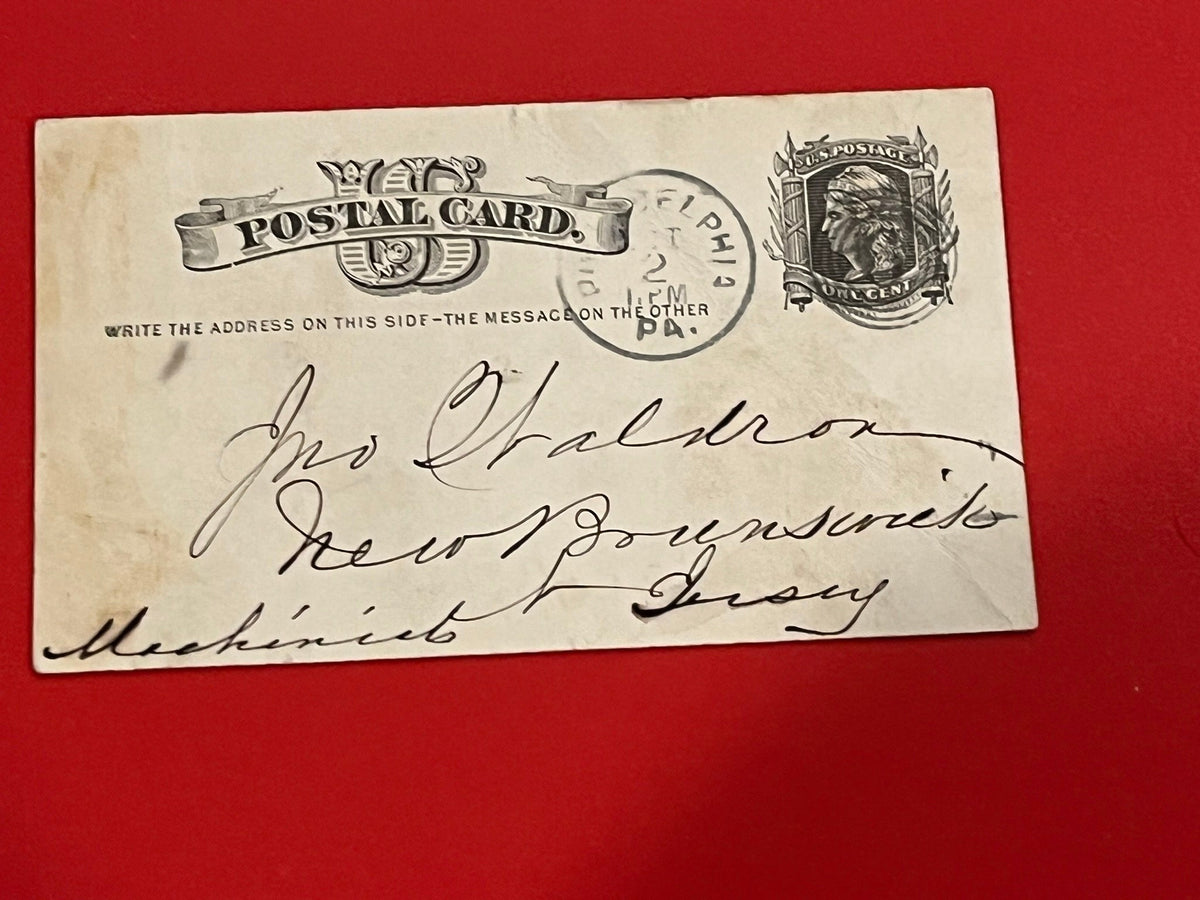 US
POSTAL CARD.
WRITE THE ADDRESS ON THIS SIDE-THE MESSAGE ON THE OTHER
DELPHIA
2
1 PM
PA.
U.S. POSTAGE
ONE CENT
Jno Waldron
New Brunswick
N Jersey
Machinist